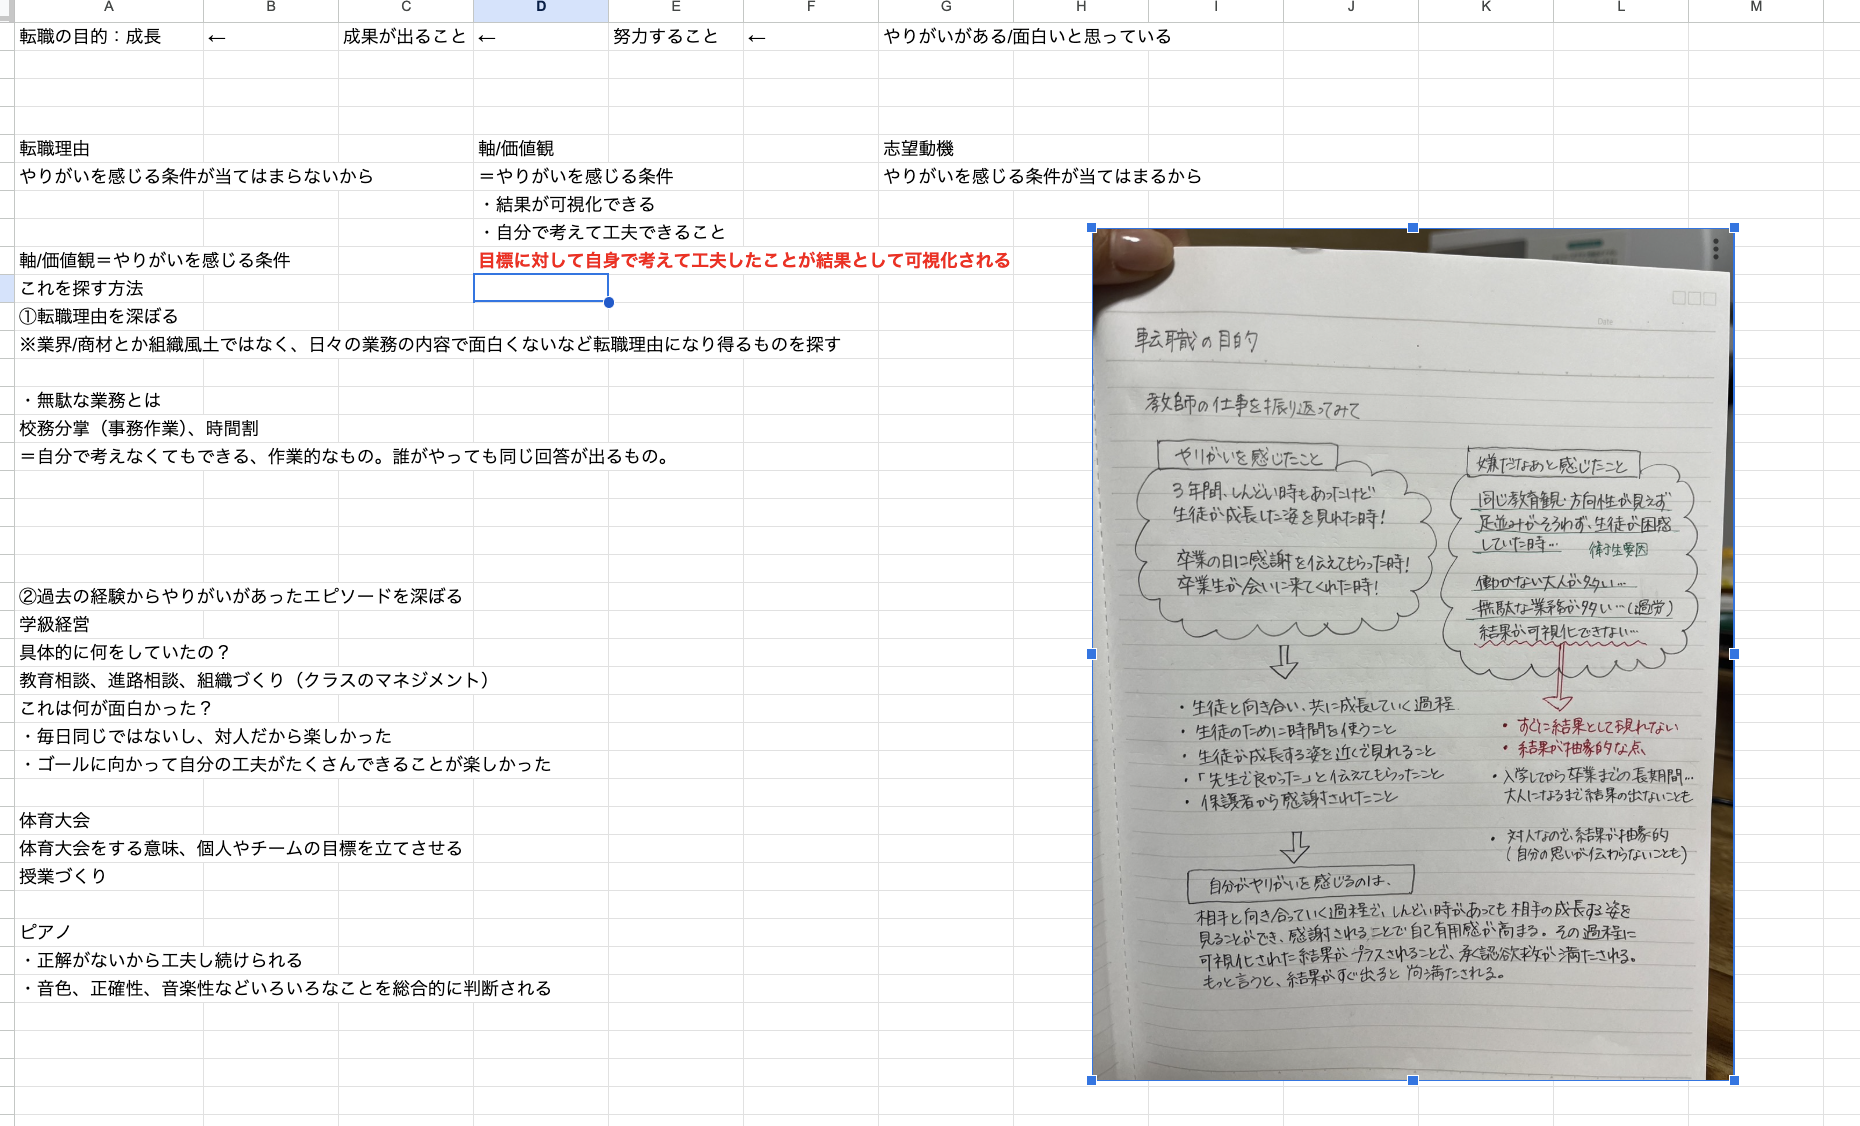 A B C D E F G H I J K L M
転職の目的：成長 ← 成果が出ること ← 努力すること ← やりがいがある/面白いと思っている
転職理由 軸/価値観 志望動機
やりがいを感じる条件が当てはまらないから ＝やりがいを感じる条件 やりがいを感じる条件が当てはまるから
・結果が可視化できる
・自分で考えて工夫できること
軸/価値観＝やりがいを感じる条件 目標に対して自身で考えて工夫したことが結果として可視化される
これを探す方法
①転職理由を深ぼる
※業界/商材とか組織風土ではなく、日々の業務の内容で面白くないなど転職理由になり得るものを探す
・無駄な業務とは
校務分掌（事務作業）、時間割
＝自分で考えなくてもできる、作業的なもの。誰がやっても同じ回答が出るもの。
②過去の経験からやりがいがあったエピソードを深ぼる
学級経営
具体的に何をしていたの？
教育相談、進路相談、組織づくり（クラスのマネジメント）
これは何が面白かった？
・毎日同じではないし、対人だから楽しかった
・ゴールに向かって自分の工夫がたくさんできることが楽しかった
体育大会
体育大会をする意味、個人やチームの目標を立てさせる
授業づくり
ピアノ
・正解がないから工夫し続けられる
・音色、正確性、音楽性などいろいろなことを総合的に判断される
Date
転職の目的
教師の仕事を振り返ってみて
やりがいを感じたこと
3年間、しんどい時もあったけど
生徒が成長した姿を見れた時！
卒業の日に感謝を伝えてもらった時！
卒業生が会いに来てくれた時！
・生徒と向き合い、共に成長していく過程
・生徒のために時間を使うこと
・生徒が成長する姿を近くで見れること
・「先生で良かった」と伝えてもらったこと
・保護者から感謝されたこと
嫌だなあと感じたこと
同じ教育観・方向性が見えず
足並みがそろわず、生徒が困惑
していた時… 衛生要因
働かない大人が多い…
無駄な業務が多い…（過労）
結果が可視化できない…
・すぐに結果として現れない
・結果が抽象的な点
・入学してから卒業までの長期間…
大人になるまで結果の出ないことも
・対人なので結果が抽象的
（自分の思いが伝わらないことも）
自分がやりがいを感じるのは、
相手と向き合っていく過程で、しんどい時があっても相手の成長する姿を
見ることができ、感謝されることで自己有用感が高まる。その過程に
可視化された結果がプラスされることで、承認欲求が満たされる。
もっと言うと、結果がすぐ出ると尚満たされる。